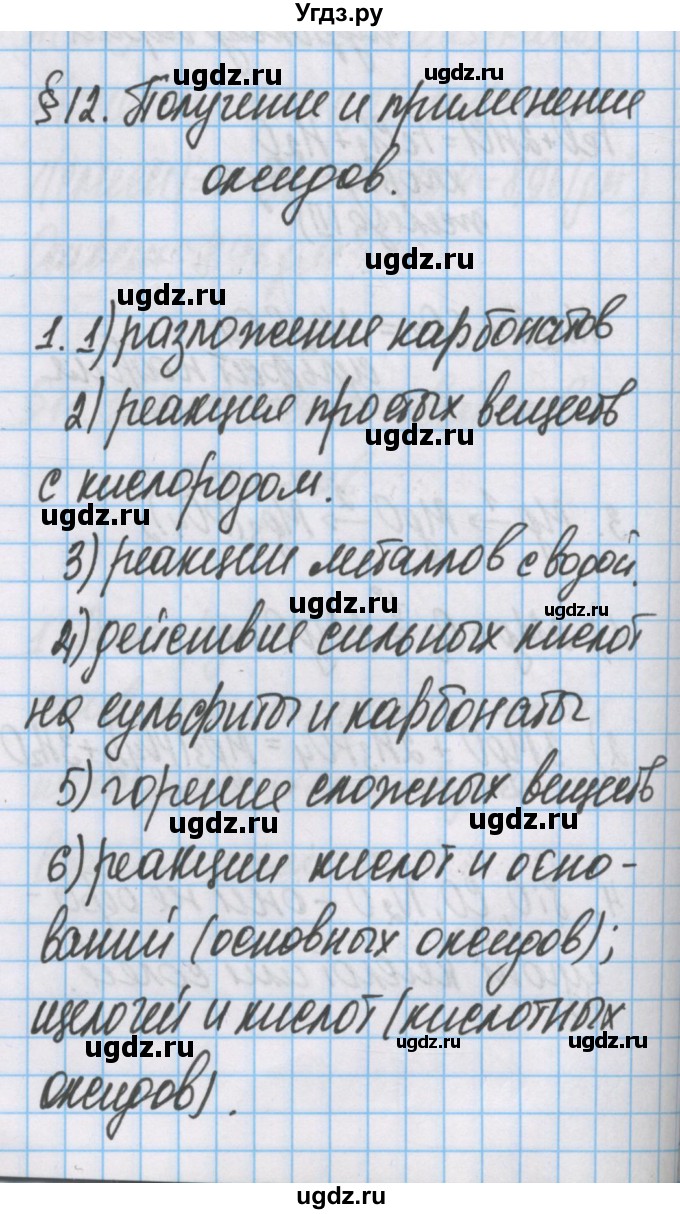 Угдз.ру
ugdz.ru ugdz.ru
§12. Получение и применение
оксидов.
ugdz.ru
ugdz.ru
1. 1) разложение карбонатов
2) реакция простых веществ
ugdz.ru
с кислородом.
ugdz.ru
3) реакции металлов с водой.
ugdz.ru ugdz.ru
4) действие сильных кислот
на сульфиты и карбонаты
5) горение сложных веществ
ugdz.ru ugdz.ru
6) реакции кислот и осно-
ваний (основных оксидов);
щелочей и кислот (кислотных
ugdz.ru ugdz.ru ugdz.ru
оксидов).
ugdz.ru